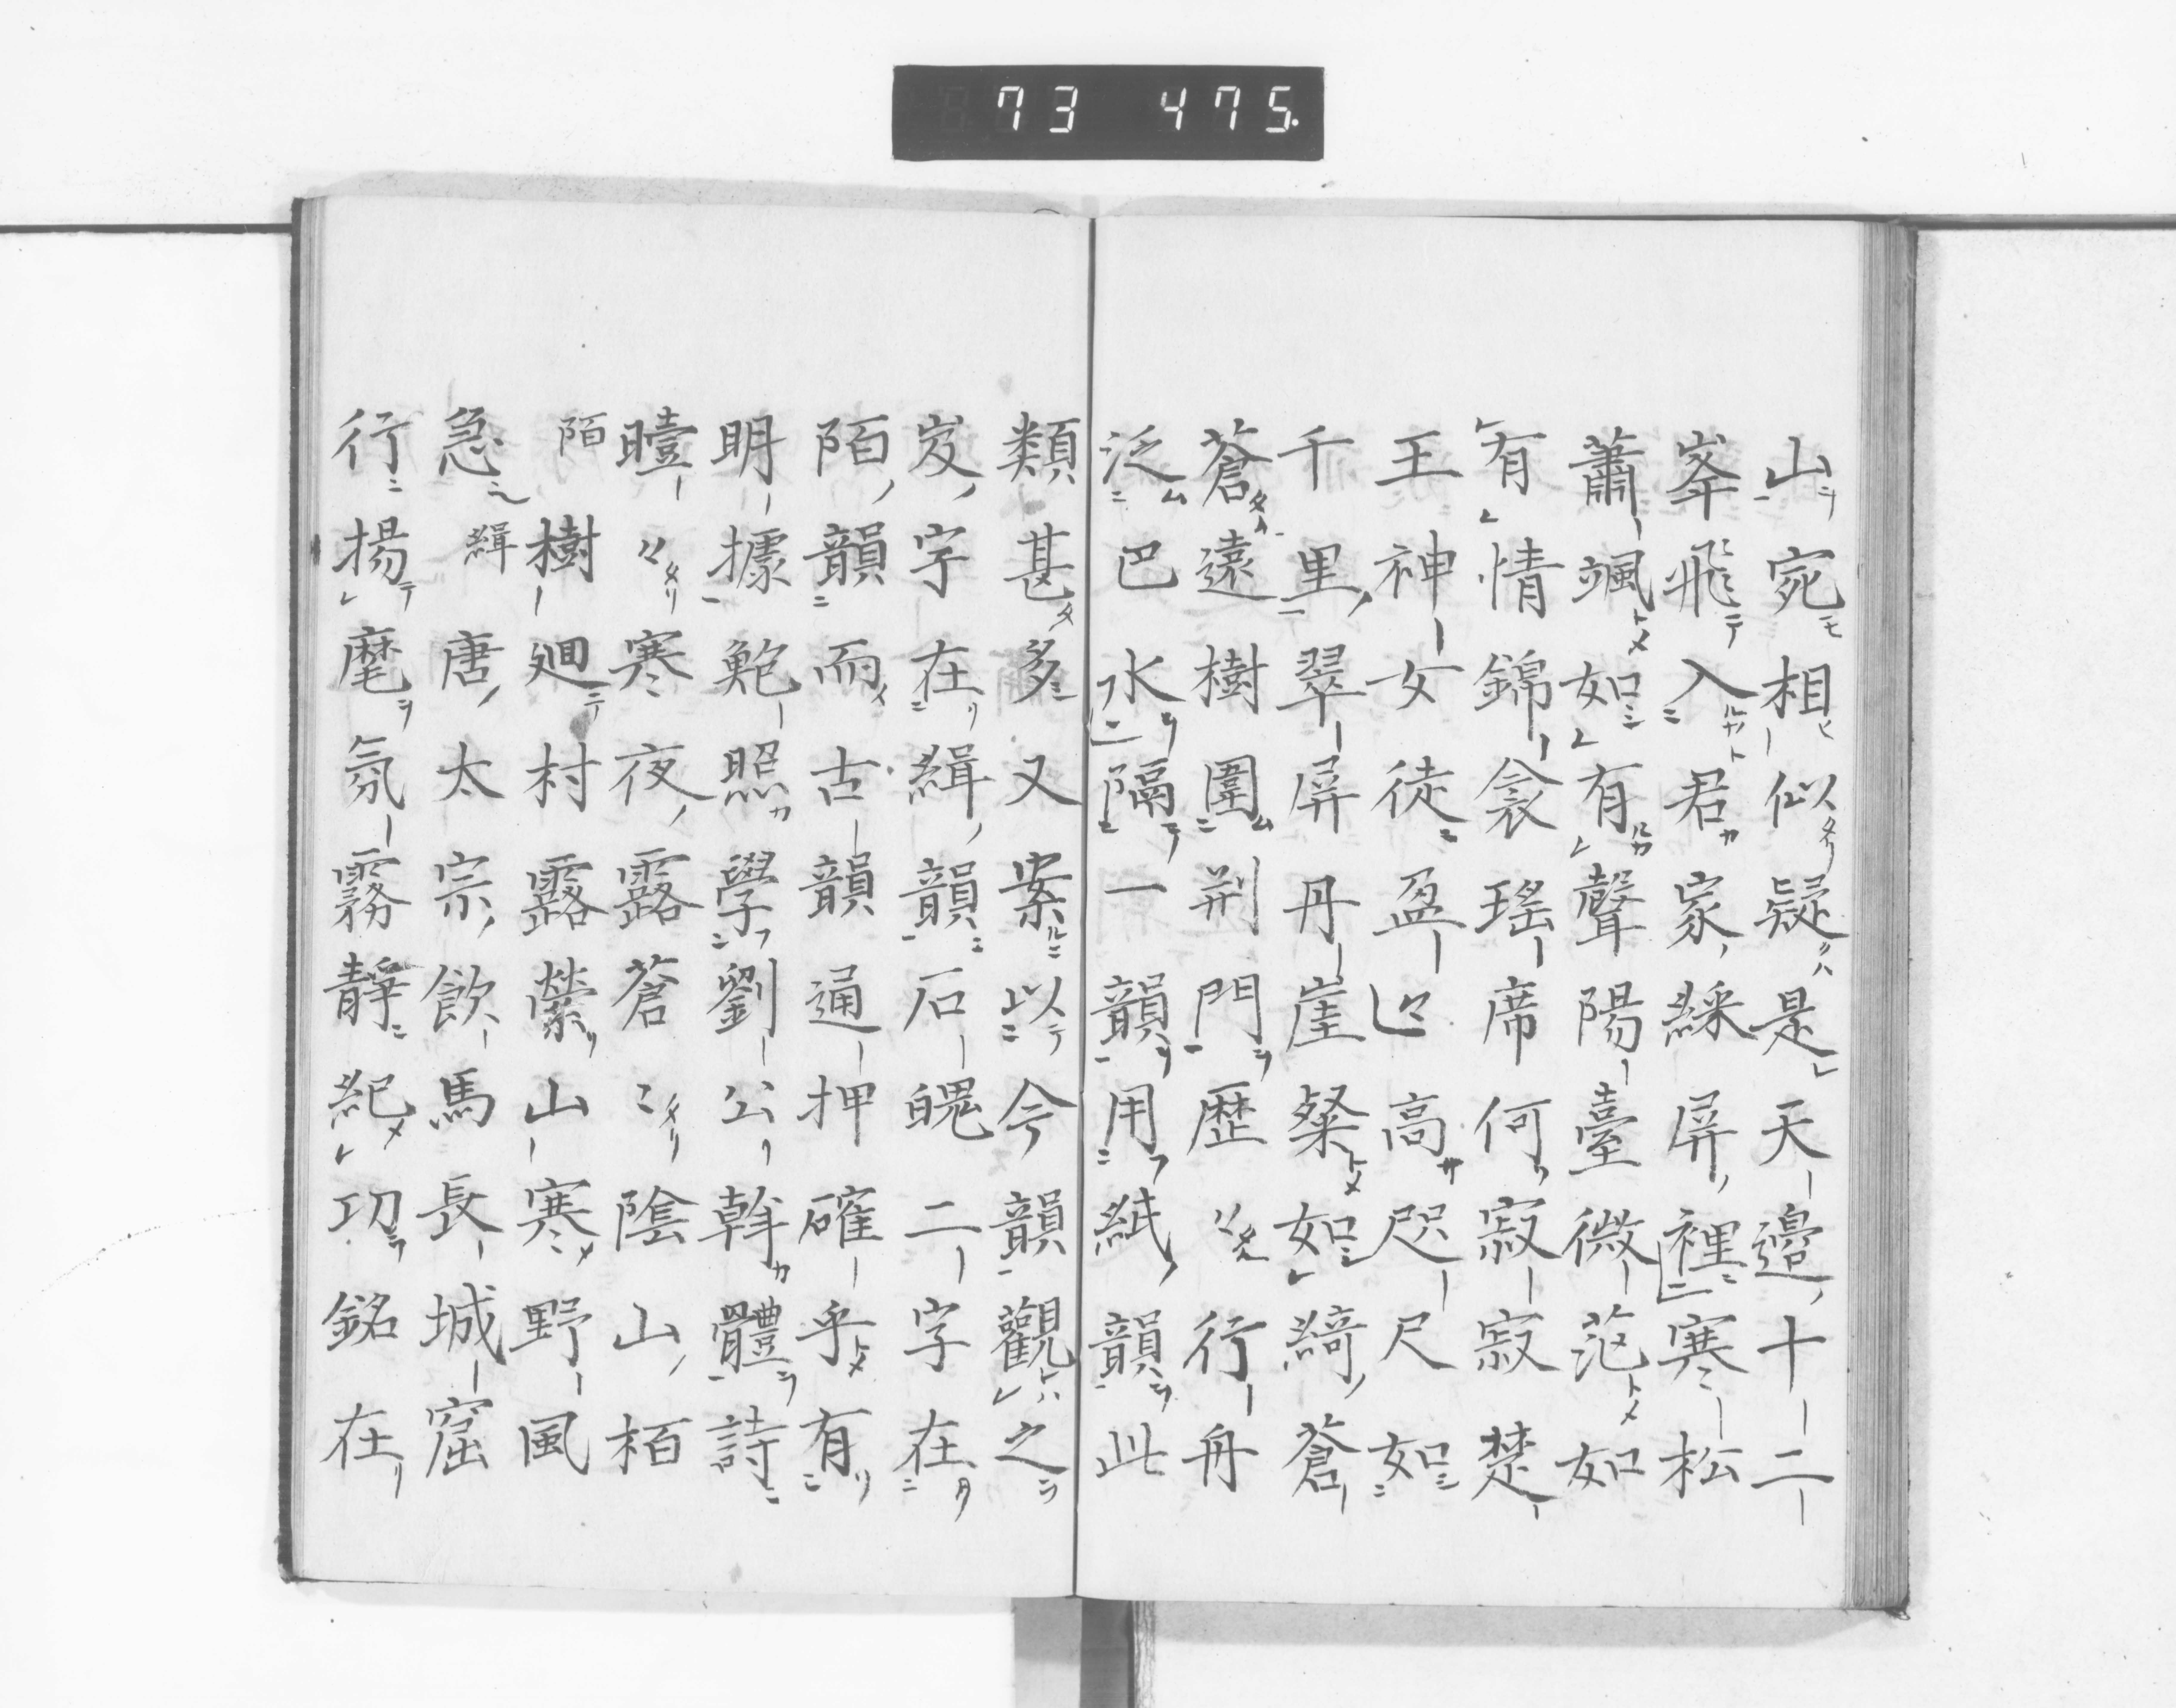 73 475.
山宛相似疑是天邊十二
峯飛入君家綵屏裡寒松
蕭颯如有聲陽臺微茫如
有情錦衾瑤席何寂寂楚
王神女徒盈〻高咫尺如
千里翠屏丹崖粲如綺蒼
蒼遠樹圍荊門歷〻行舟
泛巴水隔一韻用紙韻此
類甚多又案以今韻觀之
岌字在緝韻石魄二字在
陌韻而古韻通押確乎有
明據鮑照學劉公幹體詩
曀〻寒夜露蒼〻陰山栢
陌樹廻村露縈山寒野風
急緝唐太宗飲馬長城窟
行揚麾氛霧靜紀功銘在